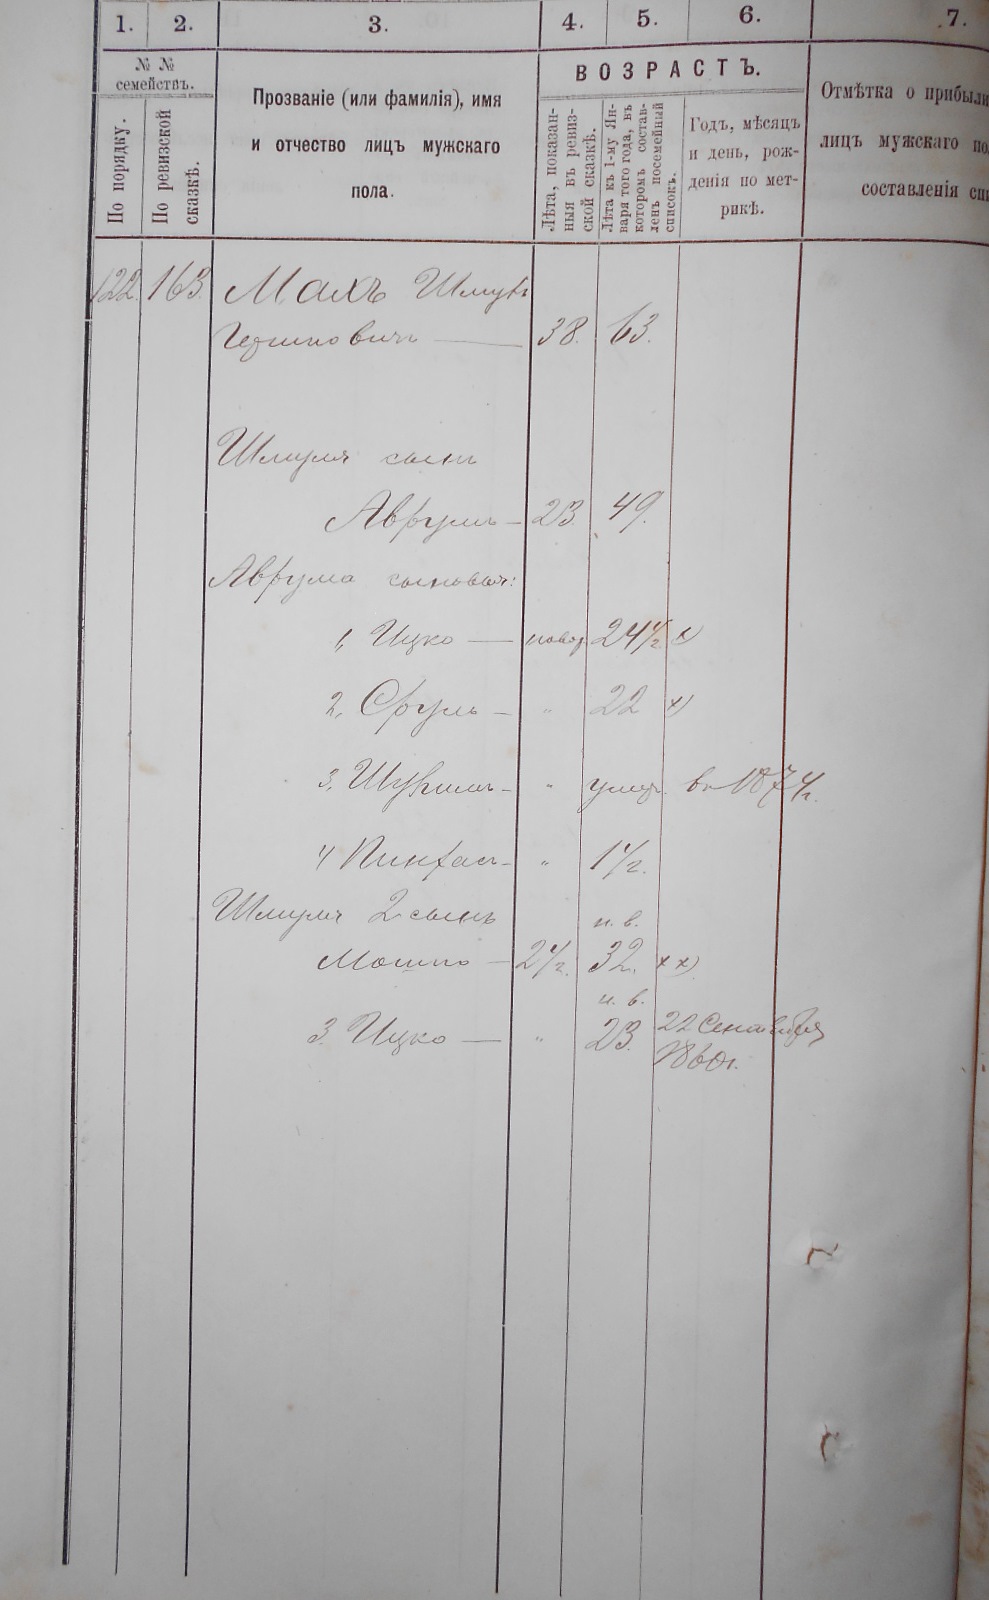 1. 2. 3. 4. 5. 6. 7.
№ №
семействъ.
По порядку.
По ревизской
сказкѣ.
Прозваніе (или фамилія), имя
и отчество лицъ мужскаго
пола.
ВОЗРАСТЪ.
Лѣта, показан-
ныя въ ревиз-
ской сказкѣ.
Лѣта къ 1-му Ян-
варя того года, въ
которомъ состав-
ленъ посемейный
списокъ.
Годъ, мѣсяцъ
и день, рож-
денія по мет-
рикѣ.
Отмѣтка о прибыли
лицъ мужскаго по
составленія сп
122 163 Махъ Шмуль
Гершковичъ — 38. 63.
Шмуля сынъ
Аврумъ — 23 49.
Аврума сыновья:
1, Ицко — новор 24 1/2 х)
2, Сруль — " 22 х)
3, — " умер. въ 187 г.
4 Пинхасъ — " 1 1/2.
Шмуля 2 сынъ н. в.
Мошко — 2 1/2. 32. хх)
н. в.
3. Ицко — " 23. 22 Сентября
1860г.